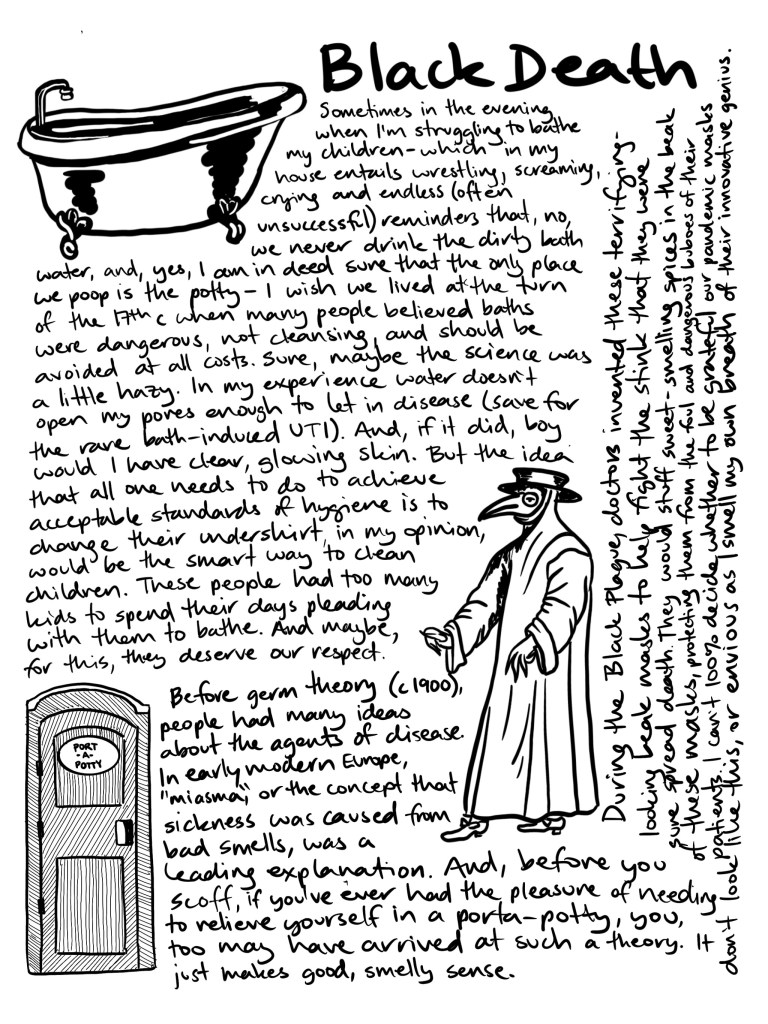 Black Death
Sometimes in the evening
when I'm struggling to bathe
my children - which in my
house entails wrestling, screaming,
crying and endless (often
unsuccessful) reminders that, no,
we never drink the dirty bath
water, and, yes, I am in deed sure that the only place
we poop is the potty - I wish we lived at the turn
of the 17th c when many people believed baths
were dangerous, not cleansing, and should be
avoided at all costs. Sure, maybe the science was
a little hazy. In my experience water doesn't
open my pores enough to let in disease (save for
the rare bath-induced UTI). And, if it did, boy
would I have clear, glowing skin. But the idea
that all one needs to do to achieve
acceptable standards of hygiene is to
change their undershirt, in my opinion,
would be the smart way to clean
children. These people had too many
kids to spend their days pleading
with them to bathe. And maybe,
for this, they deserve our respect.
Before germ theory (c 1900),
people had many ideas
about the agents of disease.
In early modern Europe,
"miasma," or the concept that
sickness was caused from
bad smells, was a
leading explanation. And, before you
scoff, if you've ever had the pleasure of needing
to relieve yourself in a porta-potty, you,
too may have arrived at such a theory. It
just makes good, smelly sense.
PORT
-A-
POTTY
During the Black Plague, doctors invented these terrifying-
looking beak masks to help fight the stink that they were
sure spread death. They would stuff sweet-smelling spices in the beak
of these masks, protecting them from the foul and dangerous buboes of their
patients. I can't 100% decide whether to be grateful our pandemic masks
don't look like this, or envious as I smell my own breath of their innovative genius.